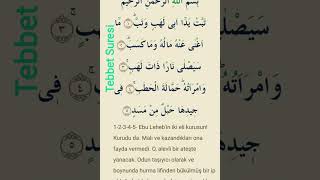 Tebbet Suresi
بِسْمِ اللّٰهِ الرَّحْمٰنِ الرَّحٖيمِ
تَبَّتْ يَدَٓا اَبٖي لَهَبٍ وَتَبَّ ﴿١﴾ مَٓا
اَغْنٰى عَنْهُ مَالُهُ وَمَا كَسَبَ ﴿٢﴾
سَيَصْلٰى نَارًا ذَاتَ لَهَبٍ ﴿٣﴾
وَامْرَاَتُهُ حَمَّالَةَ الْحَطَبِ ﴿٤﴾ فٖي
جٖيدِهَا حَبْلٌ مِنْ مَسَدٍ ﴿٥﴾
1-2-3-4-5- Ebu Leheb'in iki eli kurusun!
Kurudu da. Malı ve kazandıkları ona
fayda vermedi. O, alevli bir ateşte
yanacak. Odun taşıyıcı olarak ve
boynunda hurma lifinden bükülmüş bir ip